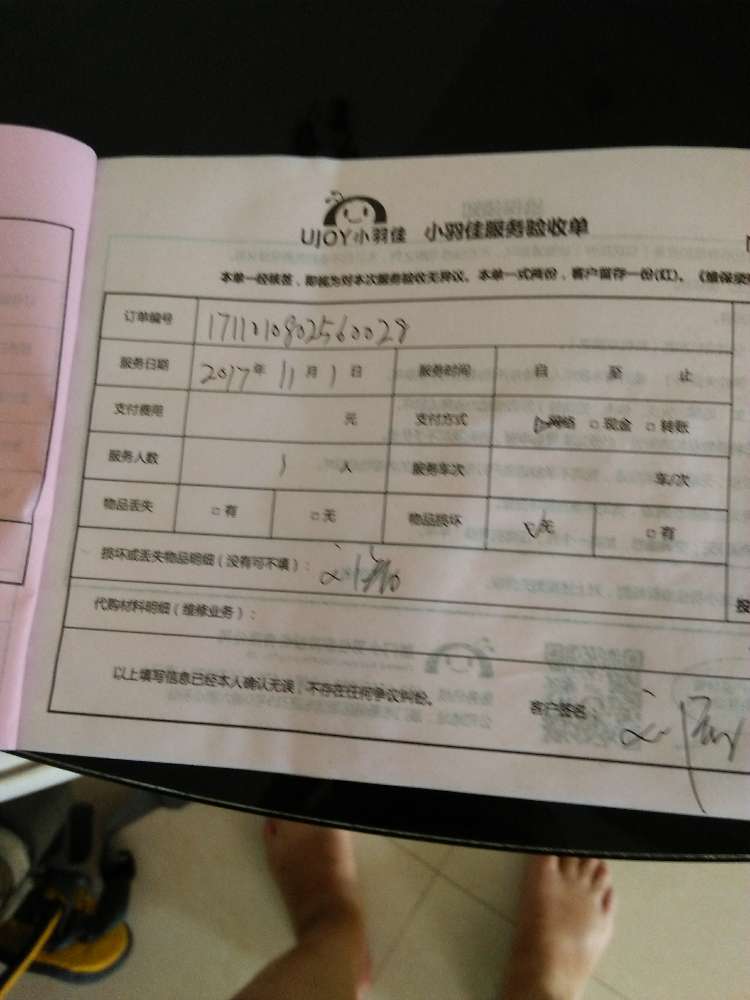 UJOY小羽佳 小羽佳服务验收单
本单一经核签，即视为对本次服务验收无异议。本单一式两份，客户留存一份(红)。《维保须
订单编号
服务日期 2017年 11月 1日 服务时间 自 至 止
支付费用 元 支付方式 网络 □现金 □转账
服务人数 1 人 服务车次 车/次
物品丢失 □有 □无 物品损坏 无 □有
损坏或丢失物品明细（没有可不填）：
代购材料明细（维修业务）：
以上填写信息已经本人确认无误，不存在任何争议纠纷。
客户签名：